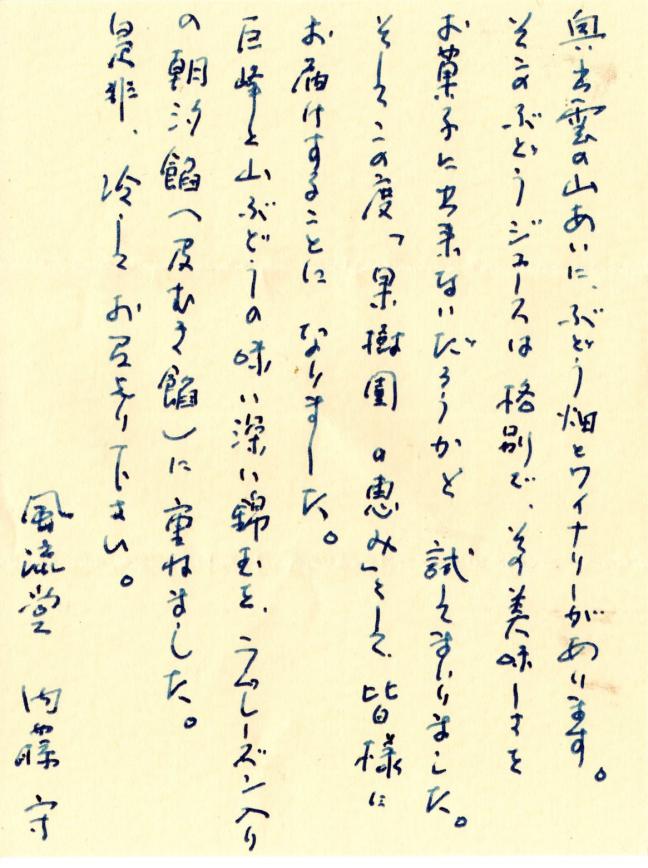 奥出雲の山あいに、ぶどう畑とワイナリーがあります。
そこのぶどうジュースは格別で、その美味しさを
お菓子に出来ないだろうかと 試してまいりました。
そしてこの度「果樹園の恵み」として、皆様に
お届けすることに なりました。
巨峰と山ぶどうの味わい深い錦玉を、ラムレーズン入り
の朝汐餡(皮むき餡)に重ねました。
是非、冷してお召上り下さい。
風流堂 内藤 守